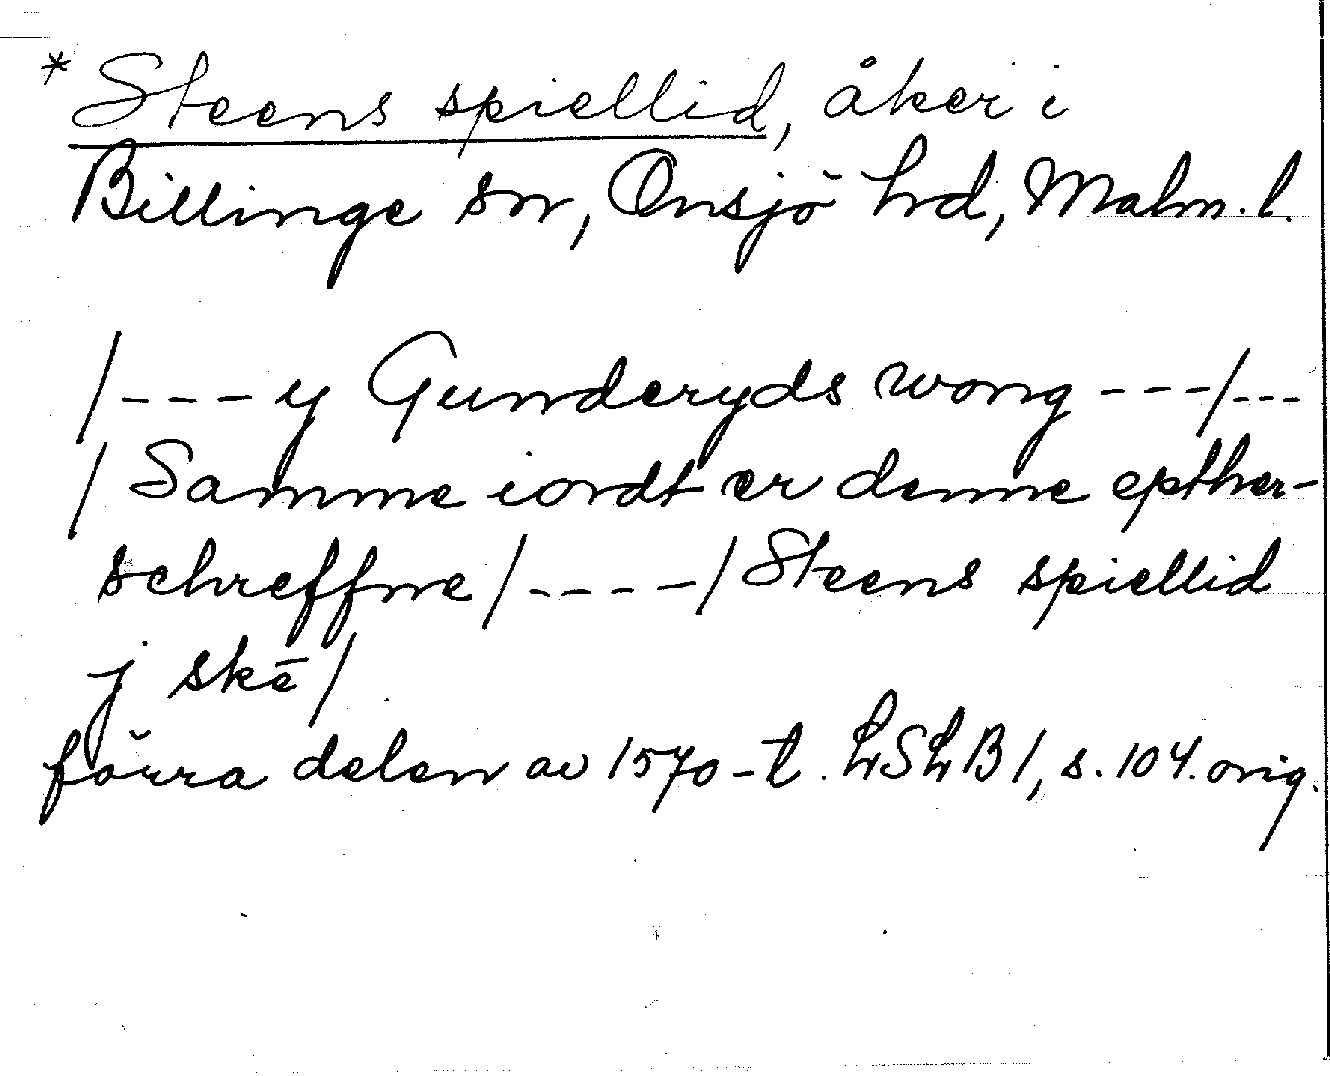 * Steens spiellid, åker i
Billinge sn, Onsjö hrd, Malm. l.
/---y Gunderyds wong ---/---
/ Samme iordt er denne epther-
schreffne /----/ Steens spiellid
j skē /
förra delen av 1570-t. LSLB 1, s. 104. orig.